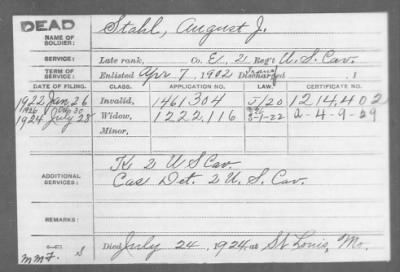 DEAD
NAME OF SOLDIER: Stahl, August J.
SERVICE: Late rank, Co. E, 2 Reg't U.S. Cav.
TERM OF SERVICE: Enlisted Apr 7, 1902 Discharged , 1
DATE OF FILING. CLASS. APPLICATION NO. LAW. CERTIFICATE NO.
1922 Jan 26 Invalid, 1461,304 1,214,402
1924 July 28 Widow, 1222,116 2-4-9-29
Minor,
ADDITIONAL SERVICES: K. 2 U S Cav.
Cas Det. 2 U.S. Cav.
REMARKS:
Died July 24, 1924 at St Louis, Mo.